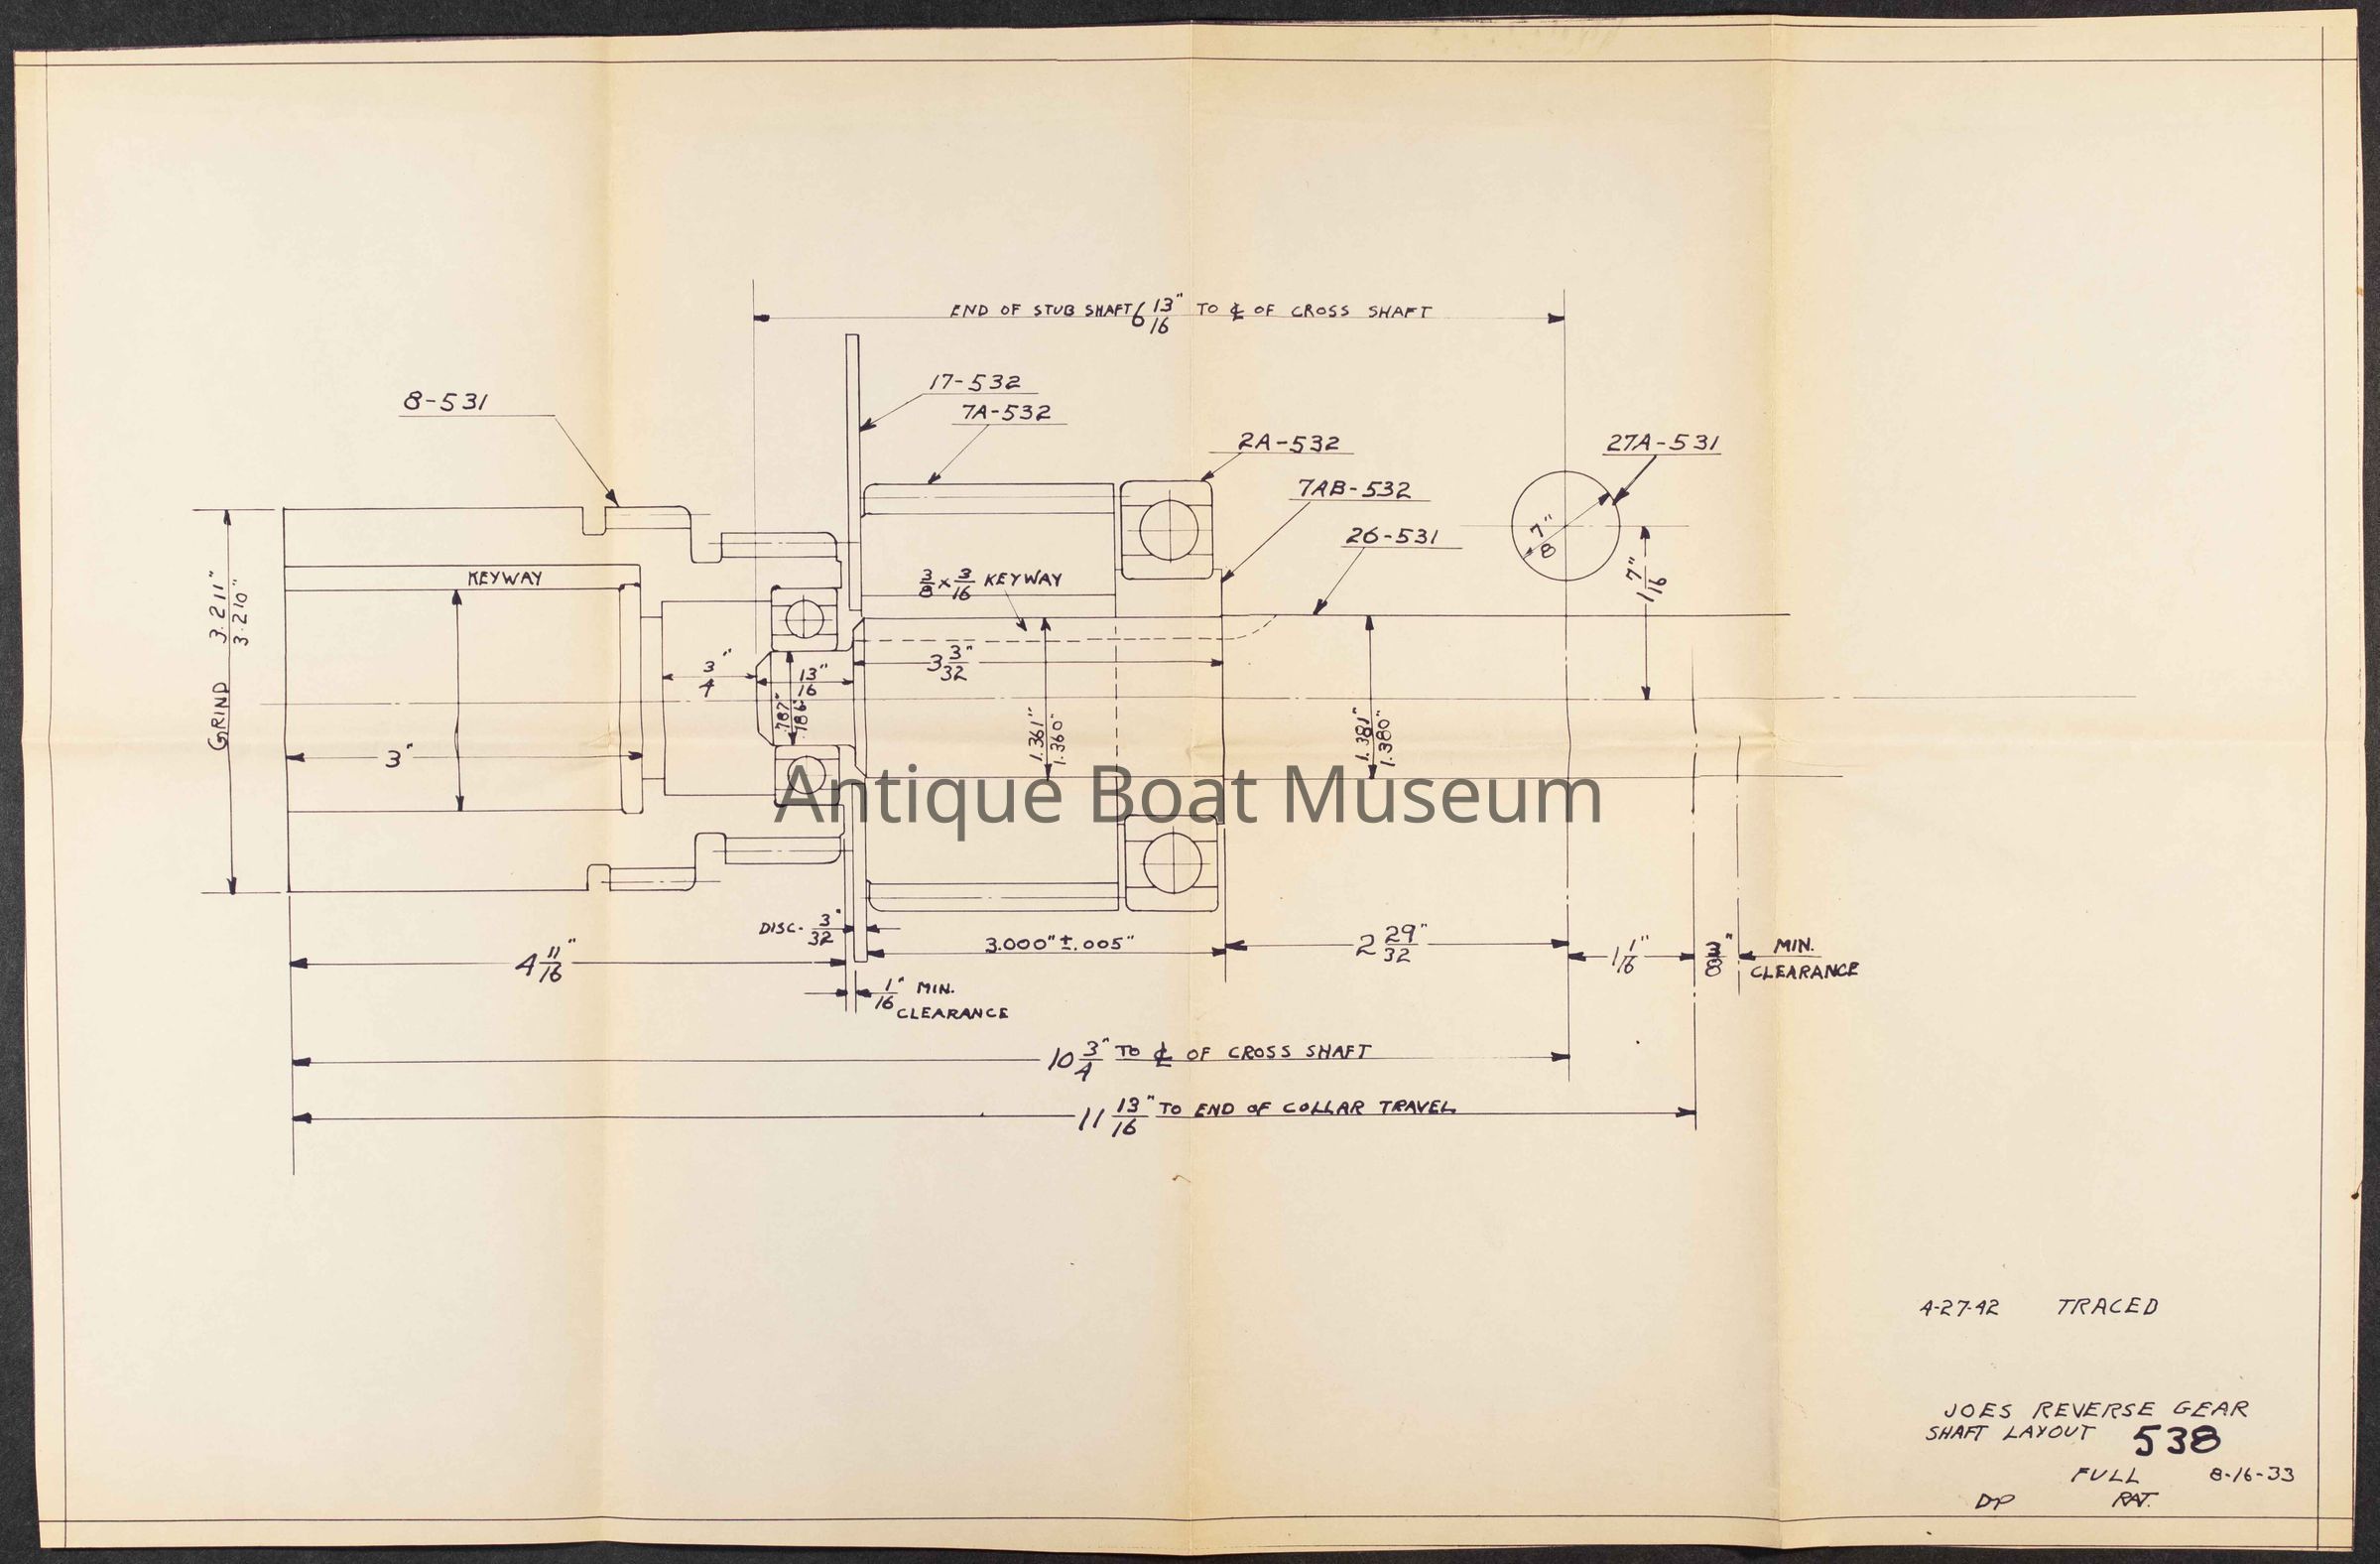 END OF STUB SHAFT 6 13/16" TO ℄ OF CROSS SHAFT
17-532
8-531
7A-532
2A-532
27A-531
7AB-532
26-531
7/8"
KEYWAY
3/8 x 3/16 KEYWAY
1 7/16"
GRIND 3.211"
3.210"
3/4"
13/16"
3 3/32"
.787"
.786"
1.361"
1.360"
1.381"
1.380"
3"
Antique Boat Museum
DISC. 3/32"
3.000" ±.005"
2 29/32"
4 11/16"
1 1/16"
3/8" MIN.
CLEARANCE
1/16" MIN.
CLEARANCE
10 3/4" TO ℄ OF CROSS SHAFT
11 13/16" TO END OF COLLAR TRAVEL
4-27-42 TRACED
JOES REVERSE GEAR
SHAFT LAYOUT 538
FULL 8-16-33
DP RAT.